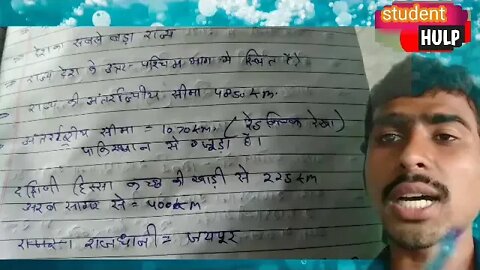 student
HULP
देश का सबसे बड़ा राज्य
राज्य देश के उत्तर पश्चिम भाग मे स्थित है।
राज्य की अंतर्राज्यीय सीमा 4850 km.
अंतर्राष्ट्रीय सीमा = 1070 km. (रेडक्लिफ रेखा)
पाकिस्थान से जुड़ा है।
दक्षिणी हिस्सा कच्छ की खाड़ी से 225 km
अरब सागर से = 400 km
राजधानी = जयपुर